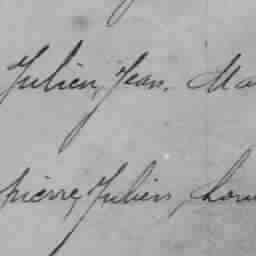 Julien, Jean. Ma
pierre, Julien, Lou